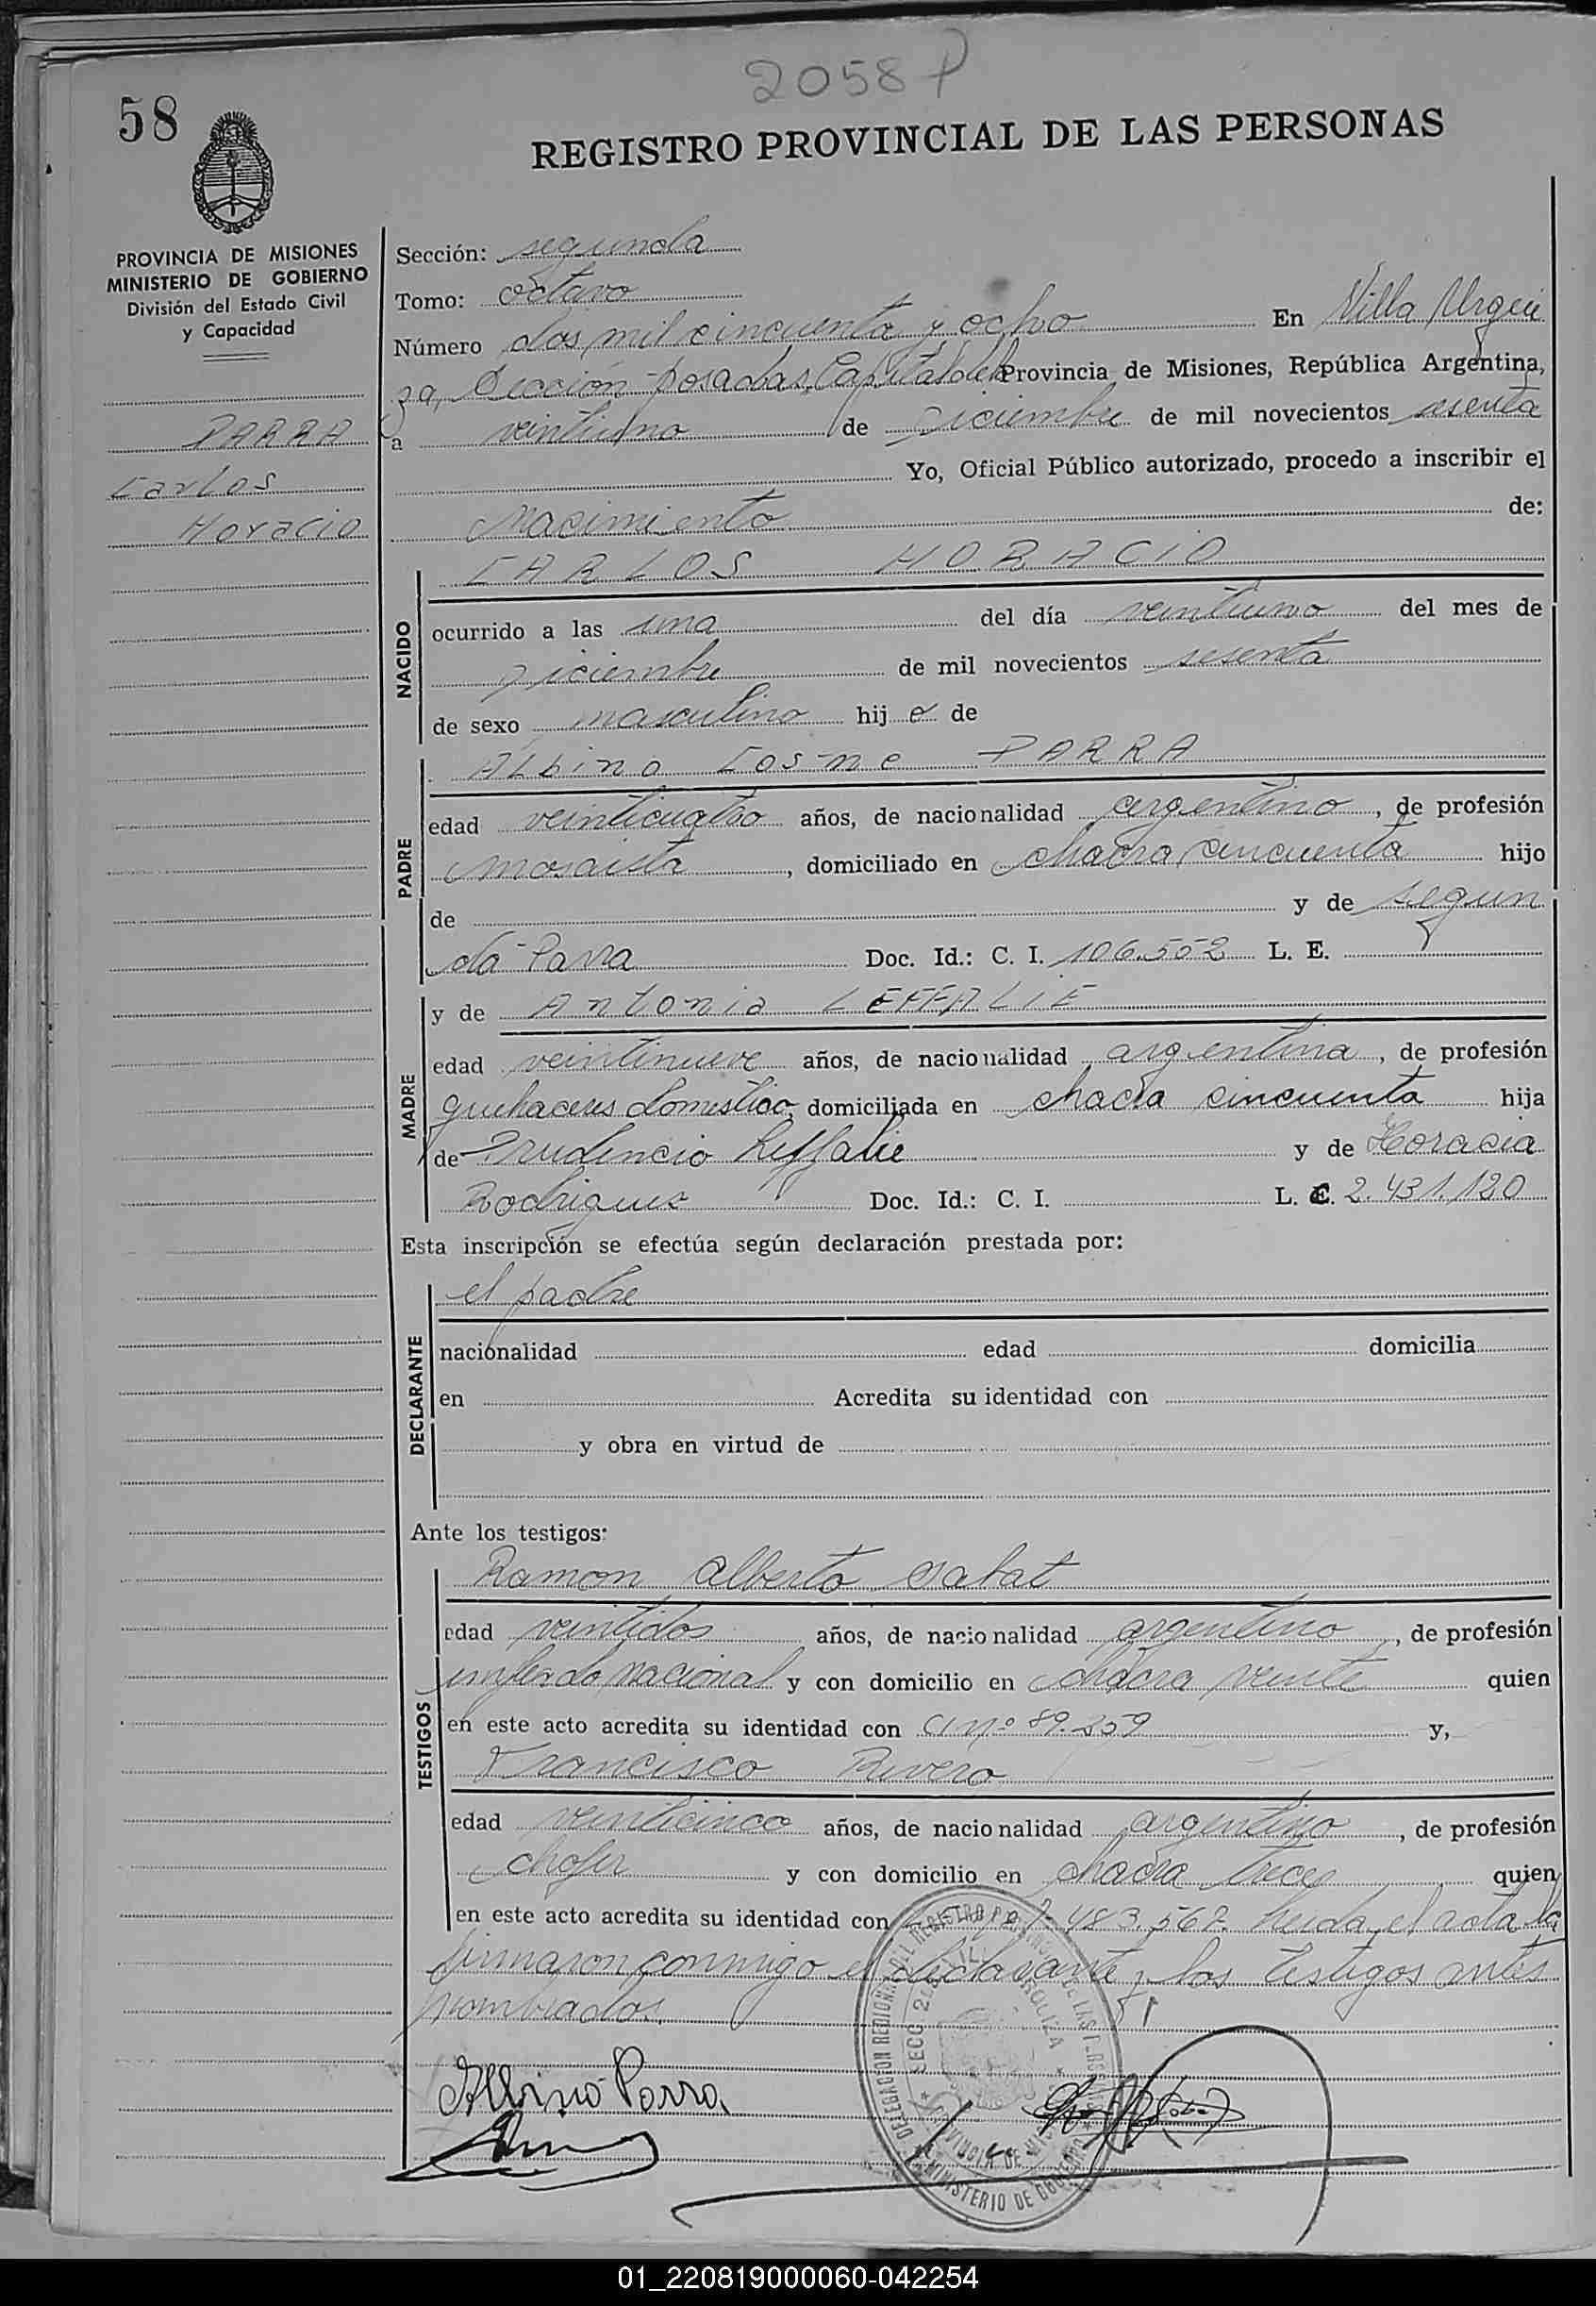 2058 P
58
REGISTRO PROVINCIAL DE LAS PERSONAS
PROVINCIA DE MISIONES
MINISTERIO DE GOBIERNO
División del Estado Civil
y Capacidad
PARRA
Carlos
Horacio
Sección: segunda
Tomo: octavo
Número dos mil cincuenta y ocho En Villa Urqui
za, Sección Posadas, Capital de la Provincia de Misiones, República Argentina,
a veintiuno de Diciembre de mil novecientos sesenta
Yo, Oficial Público autorizado, procedo a inscribir el
Nacimiento de:
CARLOS HORACIO
NACIDO
ocurrido a las una del día veintiuno del mes de
Diciembre de mil novecientos sesenta
de sexo masculino hijo de
Albino Cosme PARRA
PADRE
edad veinticuatro años, de nacionalidad argentino, de profesión
mosaista, domiciliado en chacra cincuenta hijo
de y de Segun
da Parra Doc. Id.: C. I. 106.552 L. E.
y de Antonia LEFFALIE
MADRE
edad veintinueve años, de nacionalidad argentina, de profesión
quehaceres domestico, domiciliada en chacra cincuenta hija
de Prudencio Leffalie y de Horacia
Rodrigues Doc. Id.: C. I. L. C. 2.431.120
Esta inscripción se efectúa según declaración prestada por:
el padre
DECLARANTE
nacionalidad edad domicilia
en Acredita su identidad con
y obra en virtud de
Ante los testigos:
Ramon Alberto Sabat
TESTIGOS
edad veintidos años, de nacionalidad argentino, de profesión
nacional y con domicilio en chacra veinte quien
en este acto acredita su identidad con CI nº 89.359 y,
Francisco Rivero
edad veinticinco años, de nacionalidad argentino, de profesión
chofer y con domicilio en chacra trece quien
en este acto acredita su identidad con 483.562. Leida el acta la
firmaron conmigo el declarante y los testigos antes
nombrados.
Albino Parra
DELEGACION REGIONAL DEL REGISTRO PROVINCIAL DE LAS PERSONAS
SECC 2
PROVINCIA DE MISIONES
MINISTERIO DE GOBIERNO
01_220819000060-042254